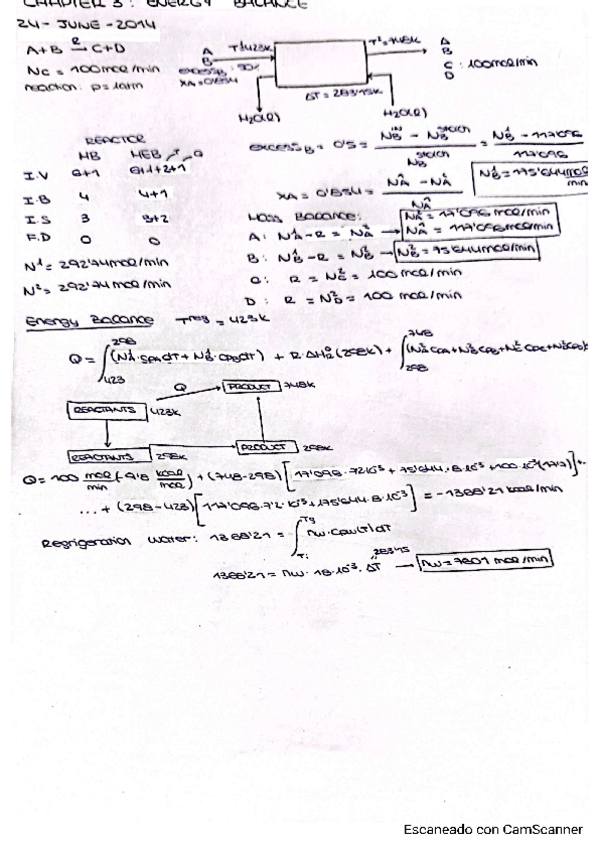 CHAPTER 3: ENERGY BALANCE
24-JUNE-2014
A+B →R C+D
Nc = 100 mol/min
reaction: p=1atm
A
B
T1=423K
excess B: 50%
XA=0'854
T2=748K
A
B
C : 100mol/min
D
ΔT = 283'15K
H2O(l)
H2O(l)
REACTOR
MB MEB
I.V 6+1 6+1+2+1
I.B 4 4+1
I.S 3 3+2
F.D 0 0
N1 = 292'74mol/min
N2 = 292'74 mol/min
excessB = 0'5 = (NB^IN - NB^stoich) / NB^stoich = (NB^1 - 117'096) / 117'096
NB^1 = 175'644 mol/min
XA = 0'854 = (NA^1 - NA^2) / NA^1
Mass Balance:
NA^2 = 17'096 mol/min
A: NA^1 - R = NA^2 → NA^1 = 117'096 mol/min
B: NB^1 - R = NB^2 → NB^2 = 75'644 mol/min
C: R = NC^2 = 100 mol/min
D: R = ND^2 = 100 mol/min
Energy Balance Tref = 423K
Q = ∫423^298 (NA^1·CPA dT + NB^1·CPB dT) + R·ΔHr°(298K) + ∫298^748 (NA^2 CPA + NB^2 CPB + NC^2 CPC + ND^2 CPD)
Q
PRODUCT 748K
REACTANTS 423K
REACTANTS 298K
PRODUCT 298K
Q = 100 mol/min (-9'8 kcal/mol) + (748-298) [17'096·7'2·10^-3 + 75'644·8·10^-3 + 100·10^-3(17'7)] + ...
... + (298-423) [117'096·7'2·10^-3 + 175'644·8·10^-3] = -1388'21 kcal/min
Refrigeration water: 1388'21 = ∫Ti^Tf nw·Cpw(T)dT
1388'21 = nw·18·10^-3·ΔT
283'15
nw = 7801 mol/min
Escaneado con CamScanner